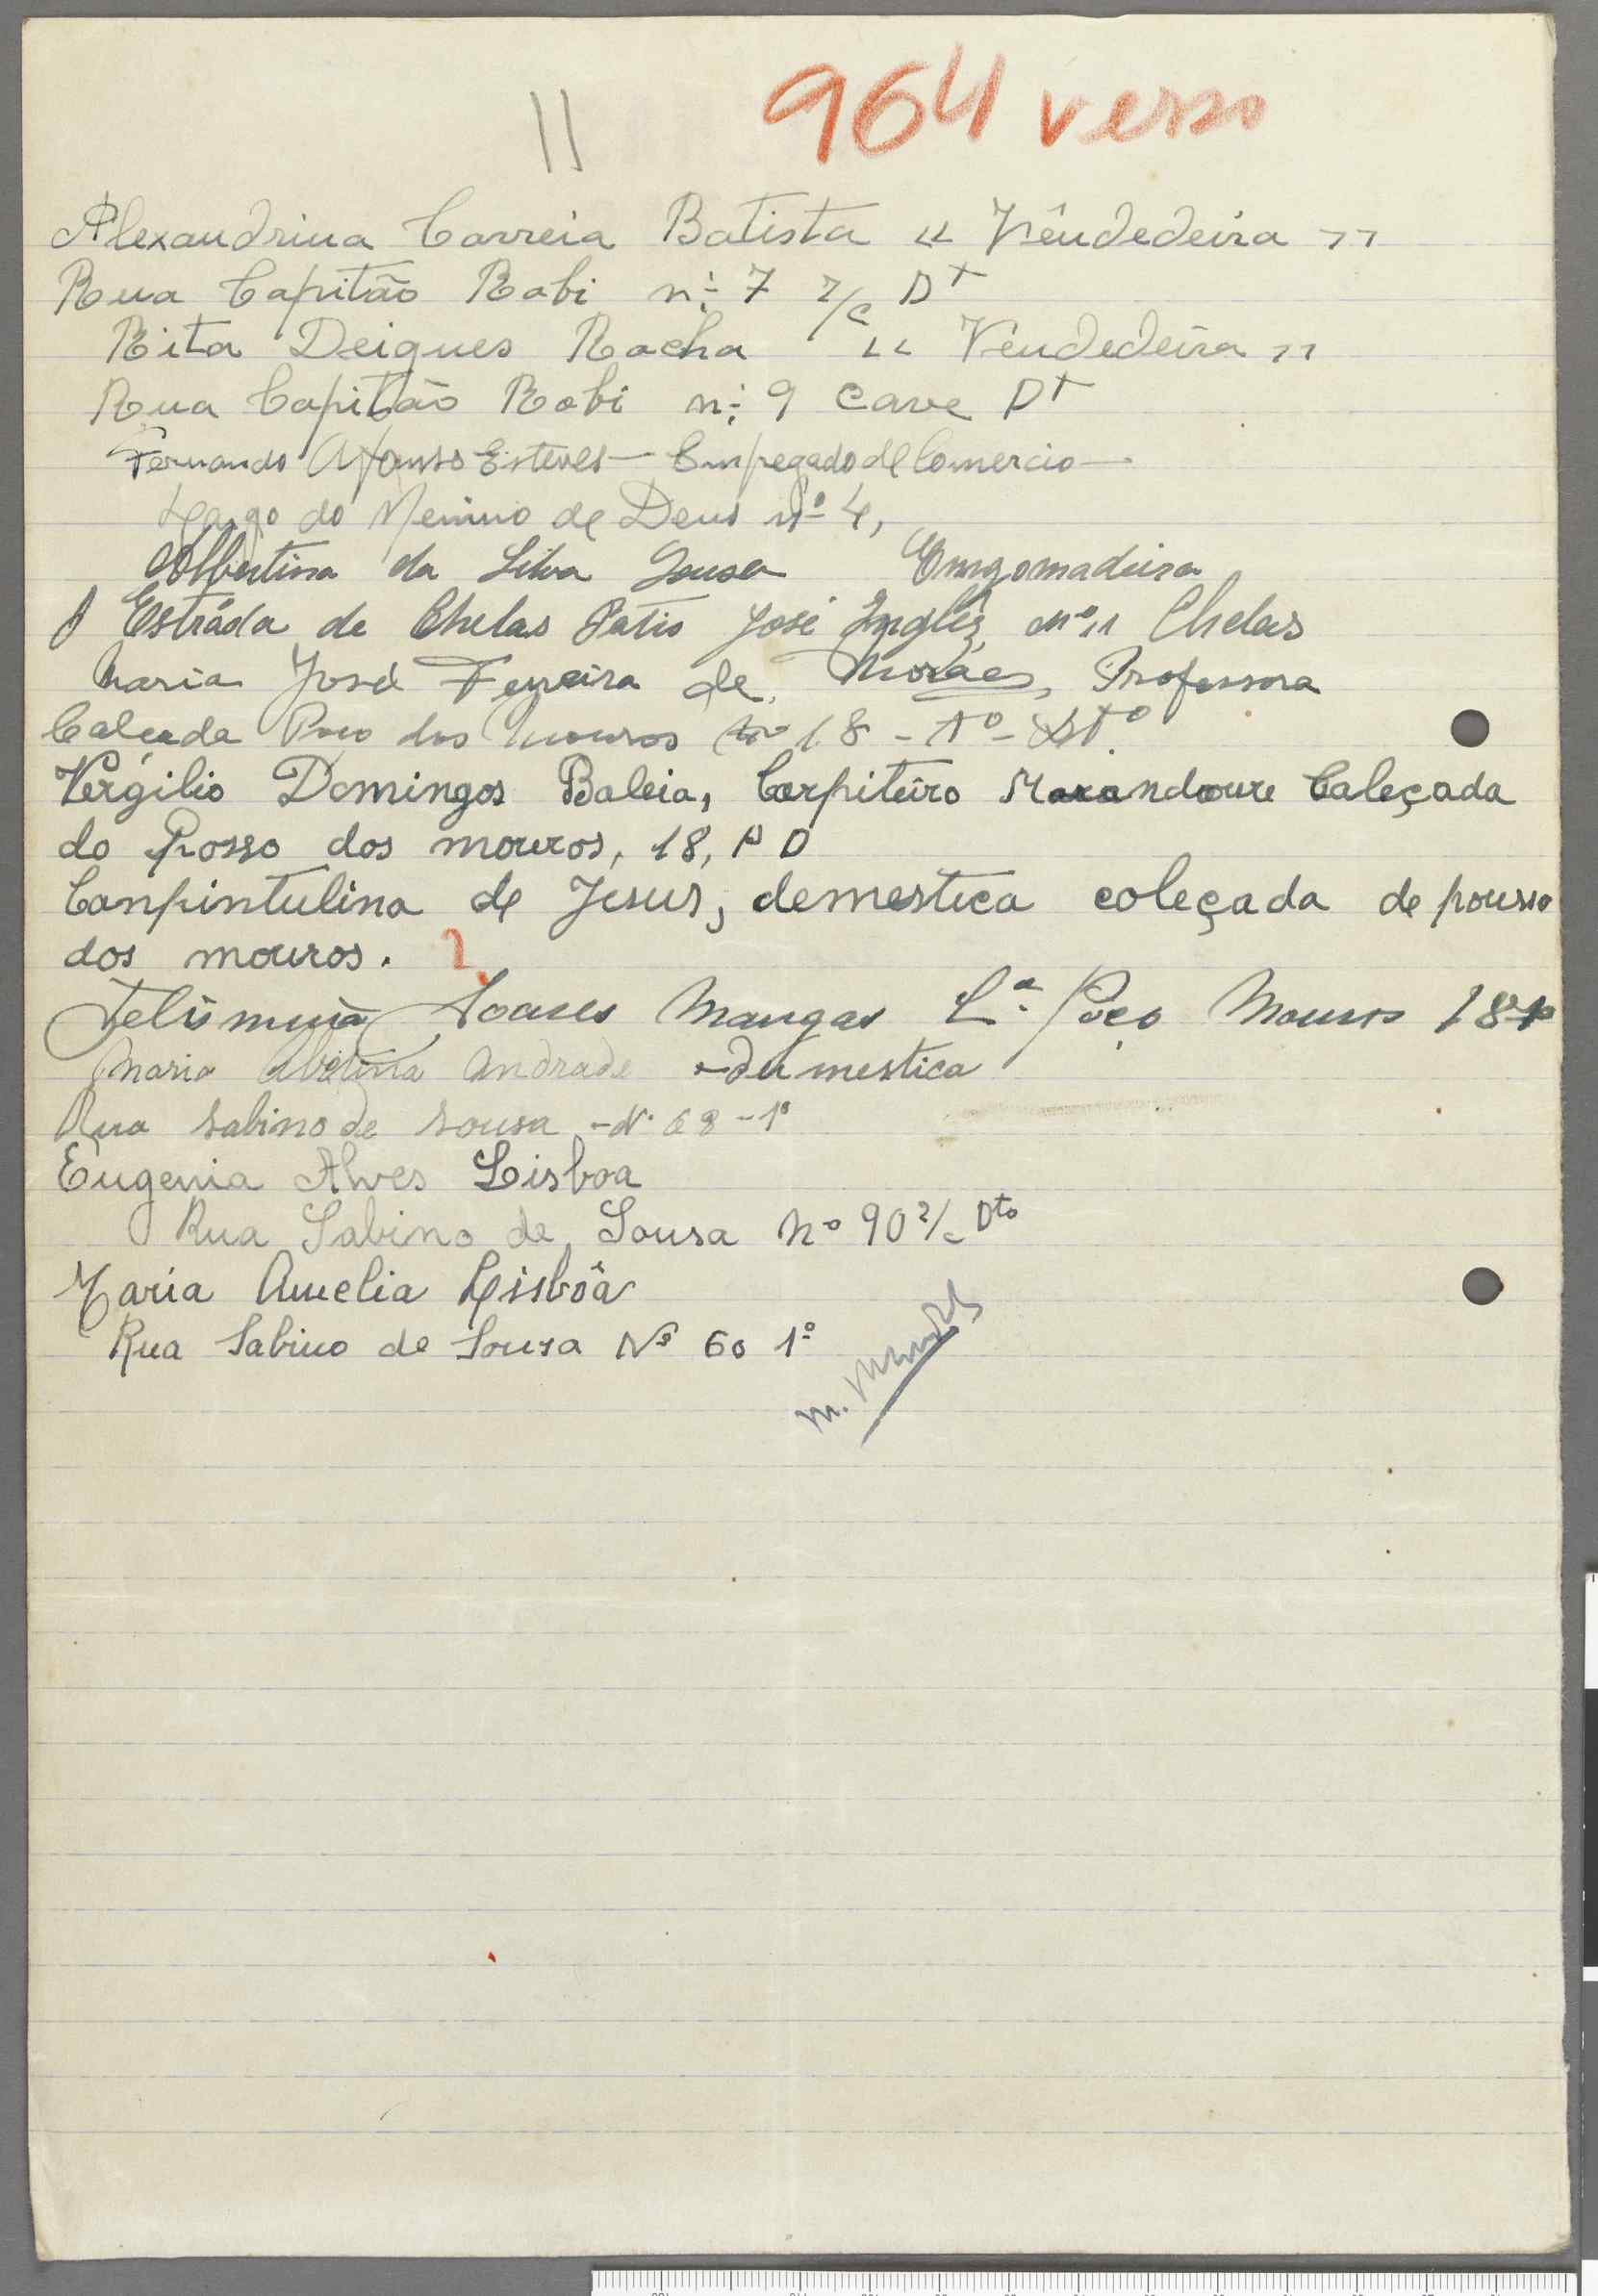 11 964 verso
Alexandrina Correia Batista « Vêndedeira »
Rua Capitão Robi nº 7 r/c Dt
Rita Deigues Rocha « Vendedeira »
Rua Capitão Robi nº 9 cave Dt
Fernando Afonso Esteves - Empregado de Comercio -
Largo do Menino de Deus nº 4,
Albertina da Silva Sousa Emgomadeira
Estráda de Chelas Patio José Inglês nº 11 Chelas
Maria José Ferreira de Moráes, Professora
Calçada Poço dos Mouros nº 18 - 1º - Dtº
Vergilio Domingos Baleia, Carpiteiro Caleçada
do Posso dos mouros, 18, D
de Jesus, demestica coleçada de pousso
dos mouros. ?
Soares Mangas Poço Mouros 18
Maria Andrade - dumestica
Rua Sabino de Sousa - Nº 68 - 1º
Eugenia Alves Lisboa
Rua Sabino de Sousa Nº 90 r/c Dto
Maria Amelia Lisbôa
Rua Sabino de Sousa Nº 60 1º